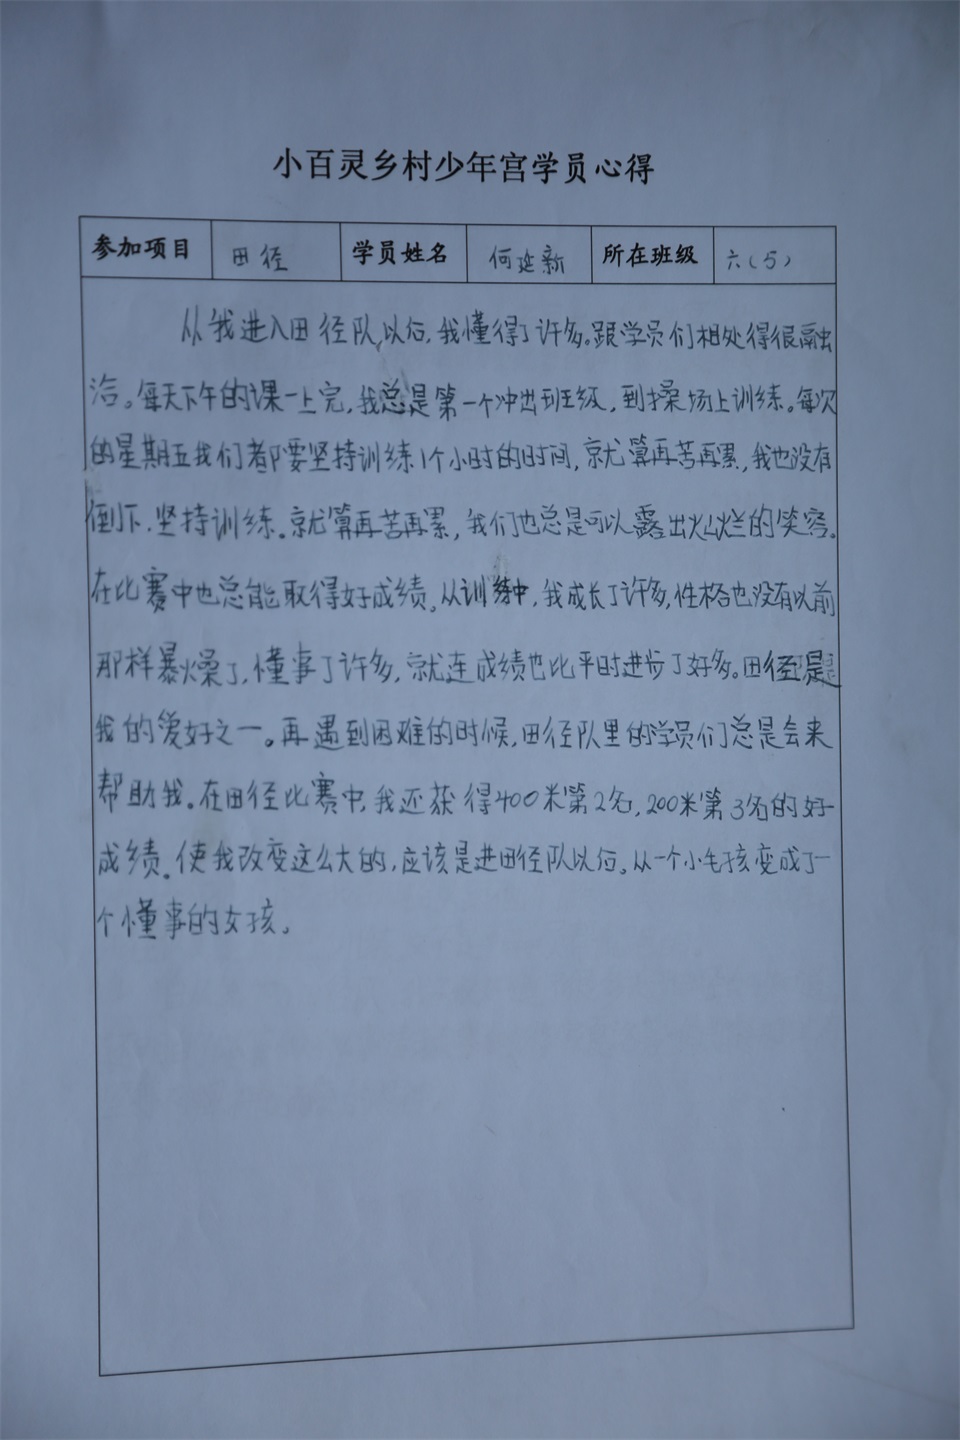 小百灵乡村少年宫学员心得
参加项目 田径 学员姓名 何延新 所在班级 六(5)
从我进入田径队以后,我懂得了许多。跟学员们相处得很融
洽。每天下午的课一上完,我总是第一个冲出班级,到操场上训练。每次
的星期五我们都要坚持训练1个小时的时间,就算再苦再累,我也没有
倒下.坚持训练。就算再苦再累,我们也总是可以露出灿烂的笑容。
在比赛中也总能取得好成绩。从训练中,我成长了许多,性格也没有以前
那样暴燥了,懂事了许多,就连成绩也比平时进步了好多。田径是
我的爱好之一。再遇到困难的时候,田径队里的学员们总是会来
帮助我。在田径比赛中,我还获得400米第2名,200米第3名的好
成绩。使我改变这么大的,应该是进田径队以后。从一个小毛孩变成了一
个懂事的女孩。